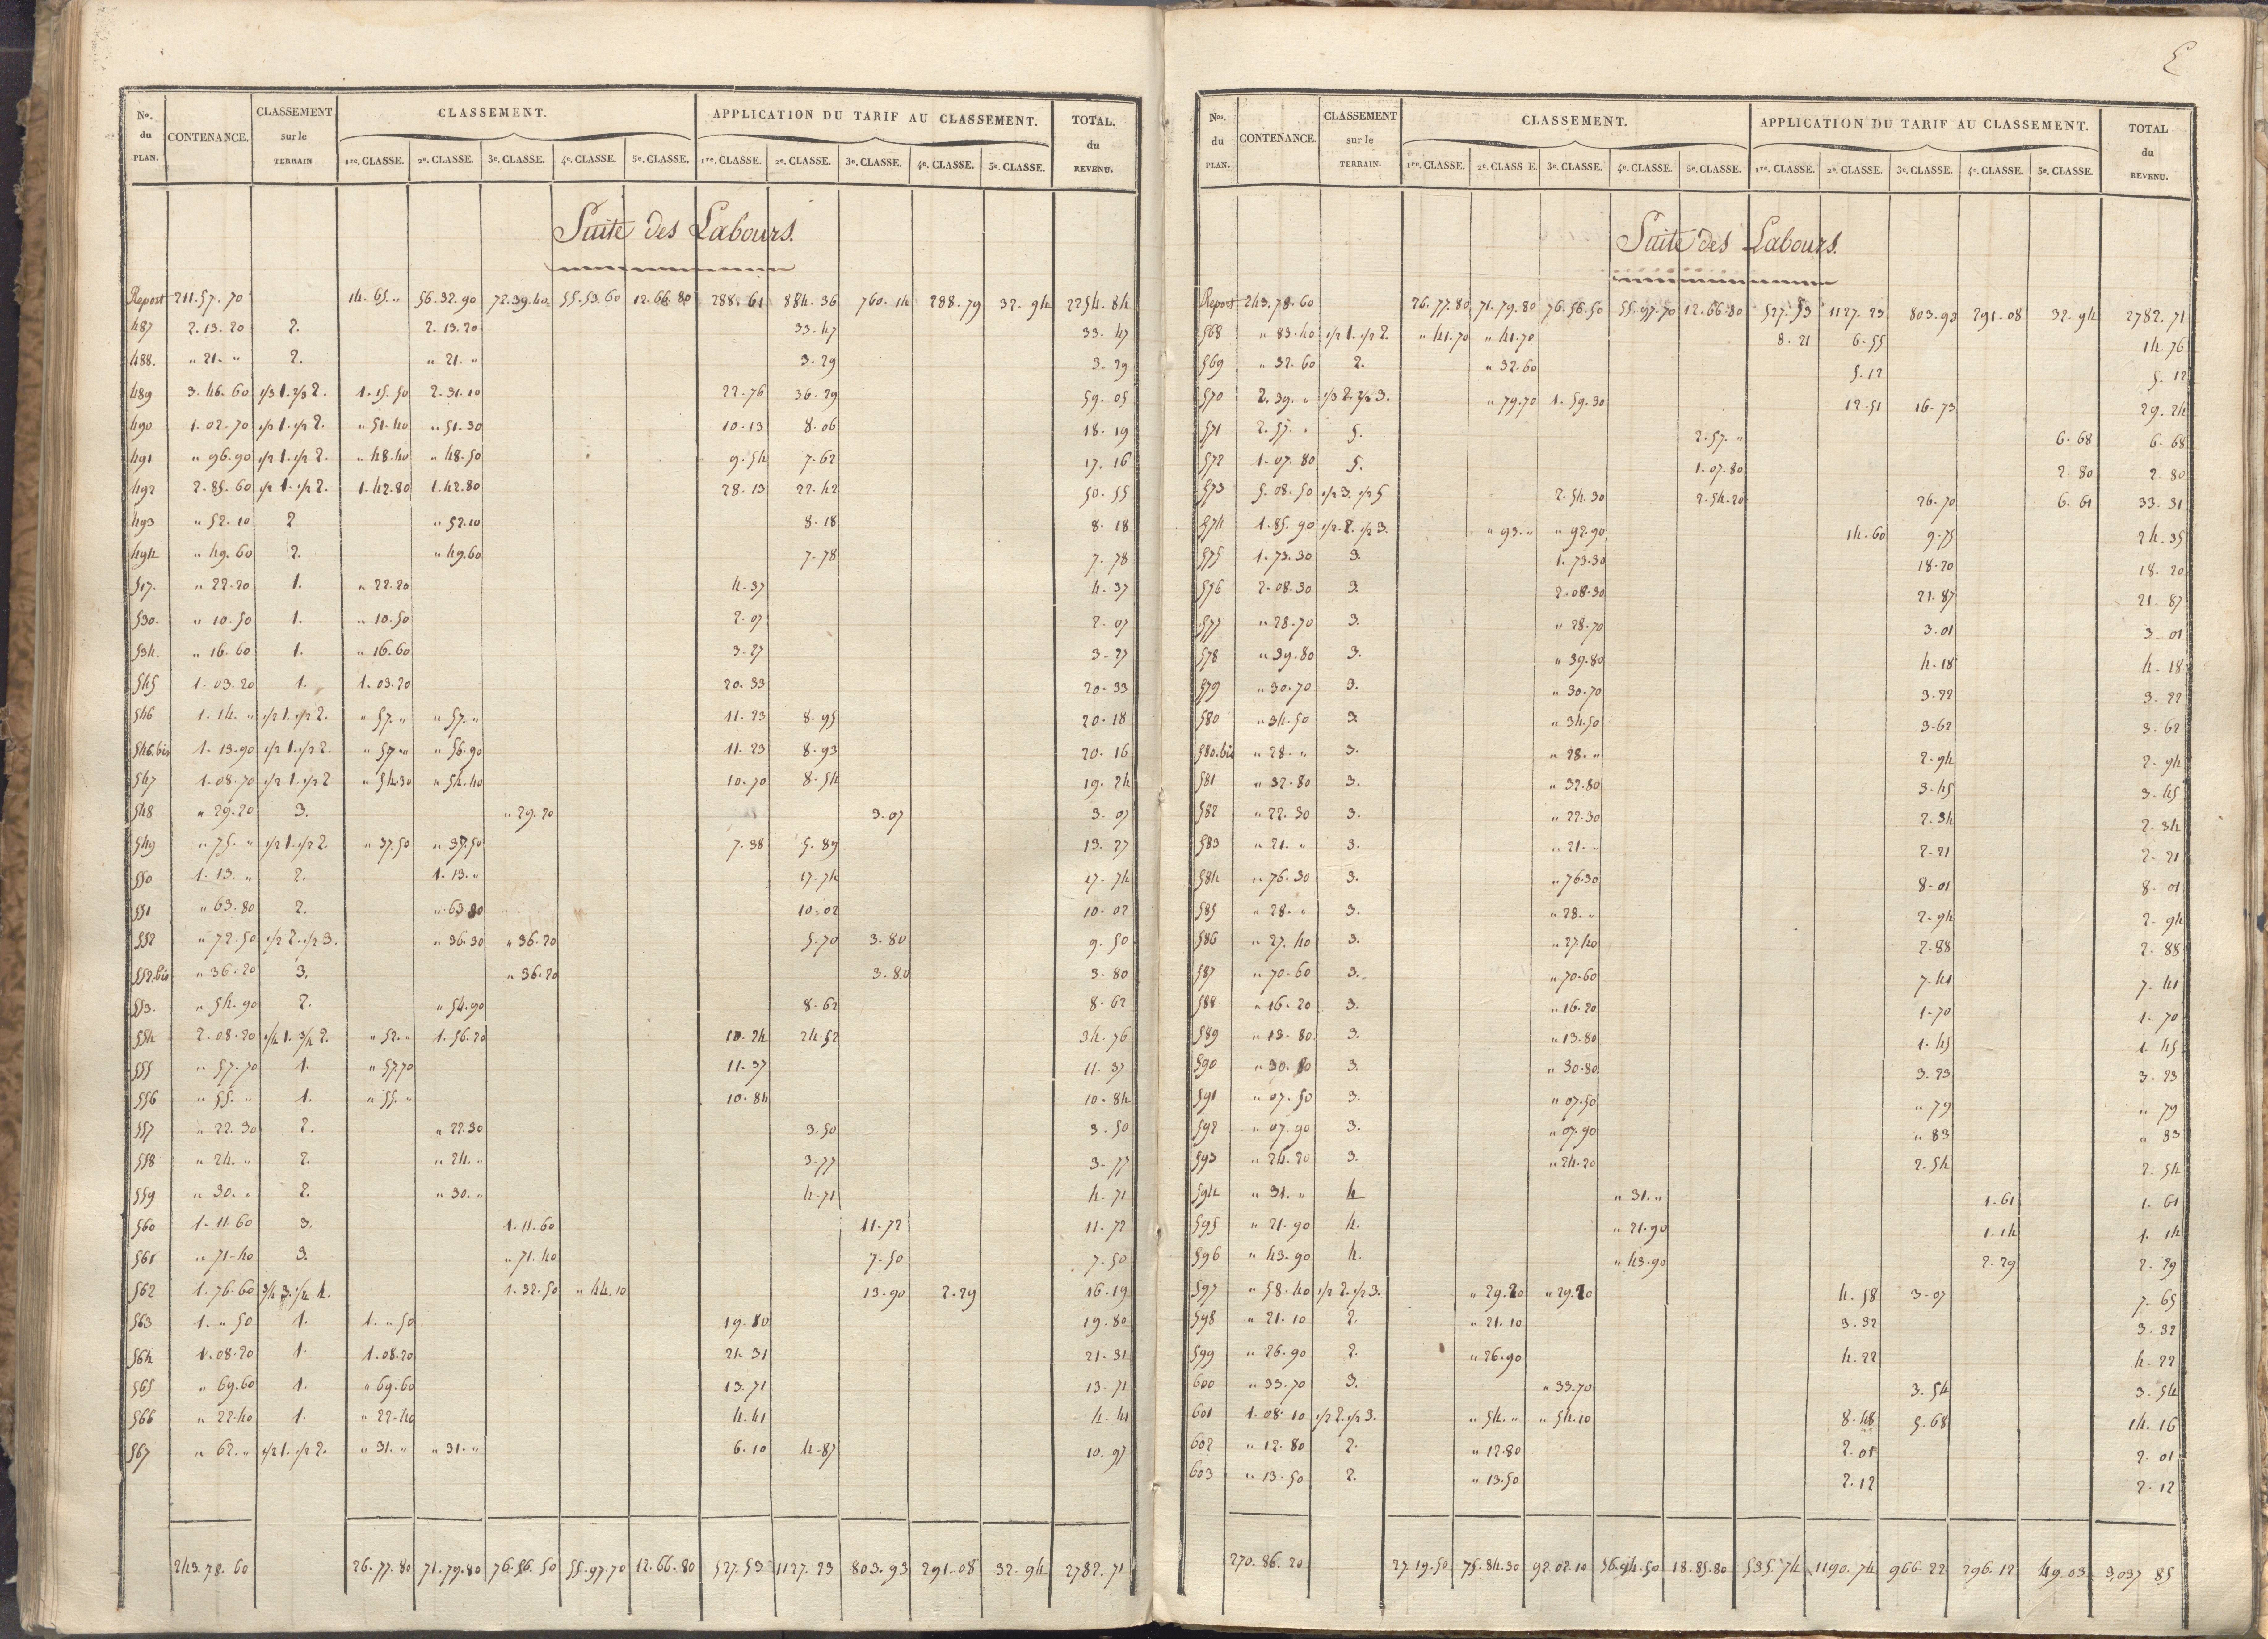 No. du PLAN. CONTENANCE. CLASSEMENT sur le TERRAIN CLASSEMENT. APPLICATION DU TARIF AU CLASSEMENT. TOTAL, du REVENU.
1re. CLASSE. 2e. CLASSE. 3e. CLASSE. 4e. CLASSE. 5e. CLASSE. 1re. CLASSE. 2e. CLASSE. 3e. CLASSE. 4e. CLASSE. 5e. CLASSE.
Suite des Labours.
Report 211.57.70 14.65.„ 56.32.90 72.39.40 55.53.60 12.66.80 288.61 884.36 760.14 288.79 32.94 2254.84
487 2.13.20 2. 2.13.20 33.47 33.47
488. „ 21.„ 2. „ 21.„ 3.29 3.29
489 3.46.60 1/3 1. 2/3 2. 1.15.50 2.31.10 22.76 36.29 59.05
490 1.02.70 1/2 1. 1/2 2. „ 51.40 „ 51.30 10.13 8.06 18.19
491 „ 96.90 1/2 1. 1/2 2. „ 48.40 „ 48.50 9.54 7.62 17.16
492 2.85.60 1/2 1. 1/2 2. 1.42.80 1.42.80 28.13 22.42 50.55
493 „ 52.10 2 „ 52.10 8.18 8.18
494 „ 49.60 2. „ 49.60 7.78 7.78
517. „ 22.20 1. „ 22.20 4.37 4.37
530. „ 10.50 1. „ 10.50 2.07 2.07
534. „ 16.60 1. „ 16.60 3.27 3.27
545 1.03.20 1. 1.03.20 20.33 20.33
546 1.14.„ 1/2 1. 1/2 2. „ 57.„ „ 57.„ 11.23 8.95 20.18
546.bis 1.13.90 1/2 1. 1/2 2. „ 57.„ „ 56.90 11.23 8.93 20.16
547 1.08.70 1/2 1. 1/2 2 „ 54.30 „ 54.40 10.70 8.54 19.24
548 „ 29.20 3. „ 29.20 3.07 3.07
549 „ 75.„ 1/2 1. 1/2 2. „ 37.50 „ 37.50 7.38 5.89 13.27
550 1.13.„ 2. 1.13.„ 17.74 17.74
551 „ 63.80 2. „ 63.80 10.02 10.02
552 „ 72.50 1/2 2. 1/2 3. „ 36.30 „ 36.20 5.70 3.80 9.50
552.bis „ 36.20 3. „ 36.20 3.80 3.80
553. „ 54.90 2. „ 54.90 8.62 8.62
554 2.08.20 1/4 1. 3/4 2. „ 52.„ 1.56.20 10.24 24.52 34.76
555 „ 57.70 1. „ 57.70 11.37 11.37
556 „ 55.„ 1. „ 55.„ 10.84 10.84
557 „ 22.30 2. „ 22.30 3.50 3.50
558 „ 24.„ 2. „ 24.„ 3.77 3.77
559 „ 30.„ 2. „ 30.„ 4.71 4.71
560 1.11.60 3. 1.11.60 11.72 11.72
561 „ 71.40 3. „ 71.40 7.50 7.50
562 1.76.60 3/4 3. 1/4 4. 1.32.50 „ 44.10 13.90 2.29 16.19
563 1.„ 50 1. 1.„ 50 19.80 19.80
564 1.08.20 1. 1.08.20 21.31 21.31
565 „ 69.60 1. „ 69.60 13.71 13.71
566 „ 22.40 1. „ 22.40 4.41 4.41
567 „ 62.„ 1/2 1. 1/2 2. „ 31.„ „ 31.„ 6.10 4.87 10.97
243.78.60 26.77.80 71.79.80 76.56.50 55.97.70 12.66.80 527.53 1127.23 803.93 291.08 32.94 2782.71
Nos. du PLAN. CONTENANCE. CLASSEMENT sur le TERRAIN. CLASSEMENT. APPLICATION DU TARIF AU CLASSEMENT. TOTAL du REVENU.
1re. CLASSE. 2e. CLASS E. 3e. CLASSE. 4e. CLASSE. 5e. CLASSE. 1re. CLASSE. 2e. CLASSE. 3e. CLASSE. 4e. CLASSE. 5e. CLASSE.
Suite des Labours.
Report 243.78.60 26.77.80 71.79.80 76.56.50 55.97.70 12.66.80 527.53 1127.23 803.93 291.08 32.94 2782.71
568 „ 83.40 1/2 1. 1/2 2. „ 41.70 „ 41.70 8.21 6.55 14.76
569 „ 32.60 2. „ 32.60 5.12 5.12
570 2.39.„ 1/3 2. 2/3 3. „ 79.70 1.59.30 12.51 16.73 29.24
571 2.57.„ 5. 2.57.„ 6.68 6.68
572 1.07.80 5. 1.07.80 2.80 2.80
573 5.08.50 1/2 3. 1/2 5 2.54.30 2.54.20 26.70 6.61 33.31
574 1.85.90 1/2 2. 1/2 3. „ 93.„ „ 92.90 14.60 9.75 24.35
575 1.73.30 3. 1.73.30 18.20 18.20
576 2.08.30 3. 2.08.30 21.87 21.87
577 „ 28.70 3. „ 28.70 3.01 3.01
578 „ 39.80 3. „ 39.80 4.18 4.18
579 „ 30.70 3. „ 30.70 3.22 3.22
580 „ 34.50 3. „ 34.50 3.62 3.62
580.bis „ 28.„ 3. „ 28.„ 2.94 2.94
581 „ 32.80 3. „ 32.80 3.45 3.45
582 „ 22.30 3. „ 22.30 2.34 2.34
583 „ 21.„ 3. „ 21.„ 2.21 2.21
584 „ 76.30 3. „ 76.30 8.01 8.01
585 „ 28.„ 3. „ 28.„ 2.94 2.94
586 „ 27.40 3. „ 27.40 2.88 2.88
587 „ 70.60 3. „ 70.60 7.41 7.41
588 „ 16.20 3. „ 16.20 1.70 1.70
589 „ 13.80 3. „ 13.80 1.45 1.45
590 „ 30.80 3. „ 30.80 3.23 3.23
591 „ 07.50 3. „ 07.50 „ 79 „ 79
592 „ 07.90 3. „ 07.90 „ 83 „ 83
593 „ 24.20 3. „ 24.20 2.54 2.54
594 „ 31.„ 4 „ 31.„ 1.61 1.61
595 „ 21.90 4. „ 21.90 1.14 1.14
596 „ 43.90 4. „ 43.90 2.29 2.29
597 „ 58.40 1/2 2. 1/2 3. „ 29.20 „ 29.20 4.58 3.07 7.65
598 „ 21.10 2. „ 21.10 3.32 3.32
599 „ 26.90 2. „ 26.90 4.22 4.22
600 „ 33.70 3. „ 33.70 3.54 3.54
601 1.08.10 1/2 2. 1/2 3. „ 54.„ „ 54.10 8.48 5.68 14.16
602 „ 12.80 2. „ 12.80 2.01 2.01
603 „ 13.50 2. „ 13.50 2.12 2.12
270.86.20 27.19.50 75.84.30 92.02.10 56.94.50 18.85.80 535.74 1190.74 966.22 296.12 49.03 3,037 85